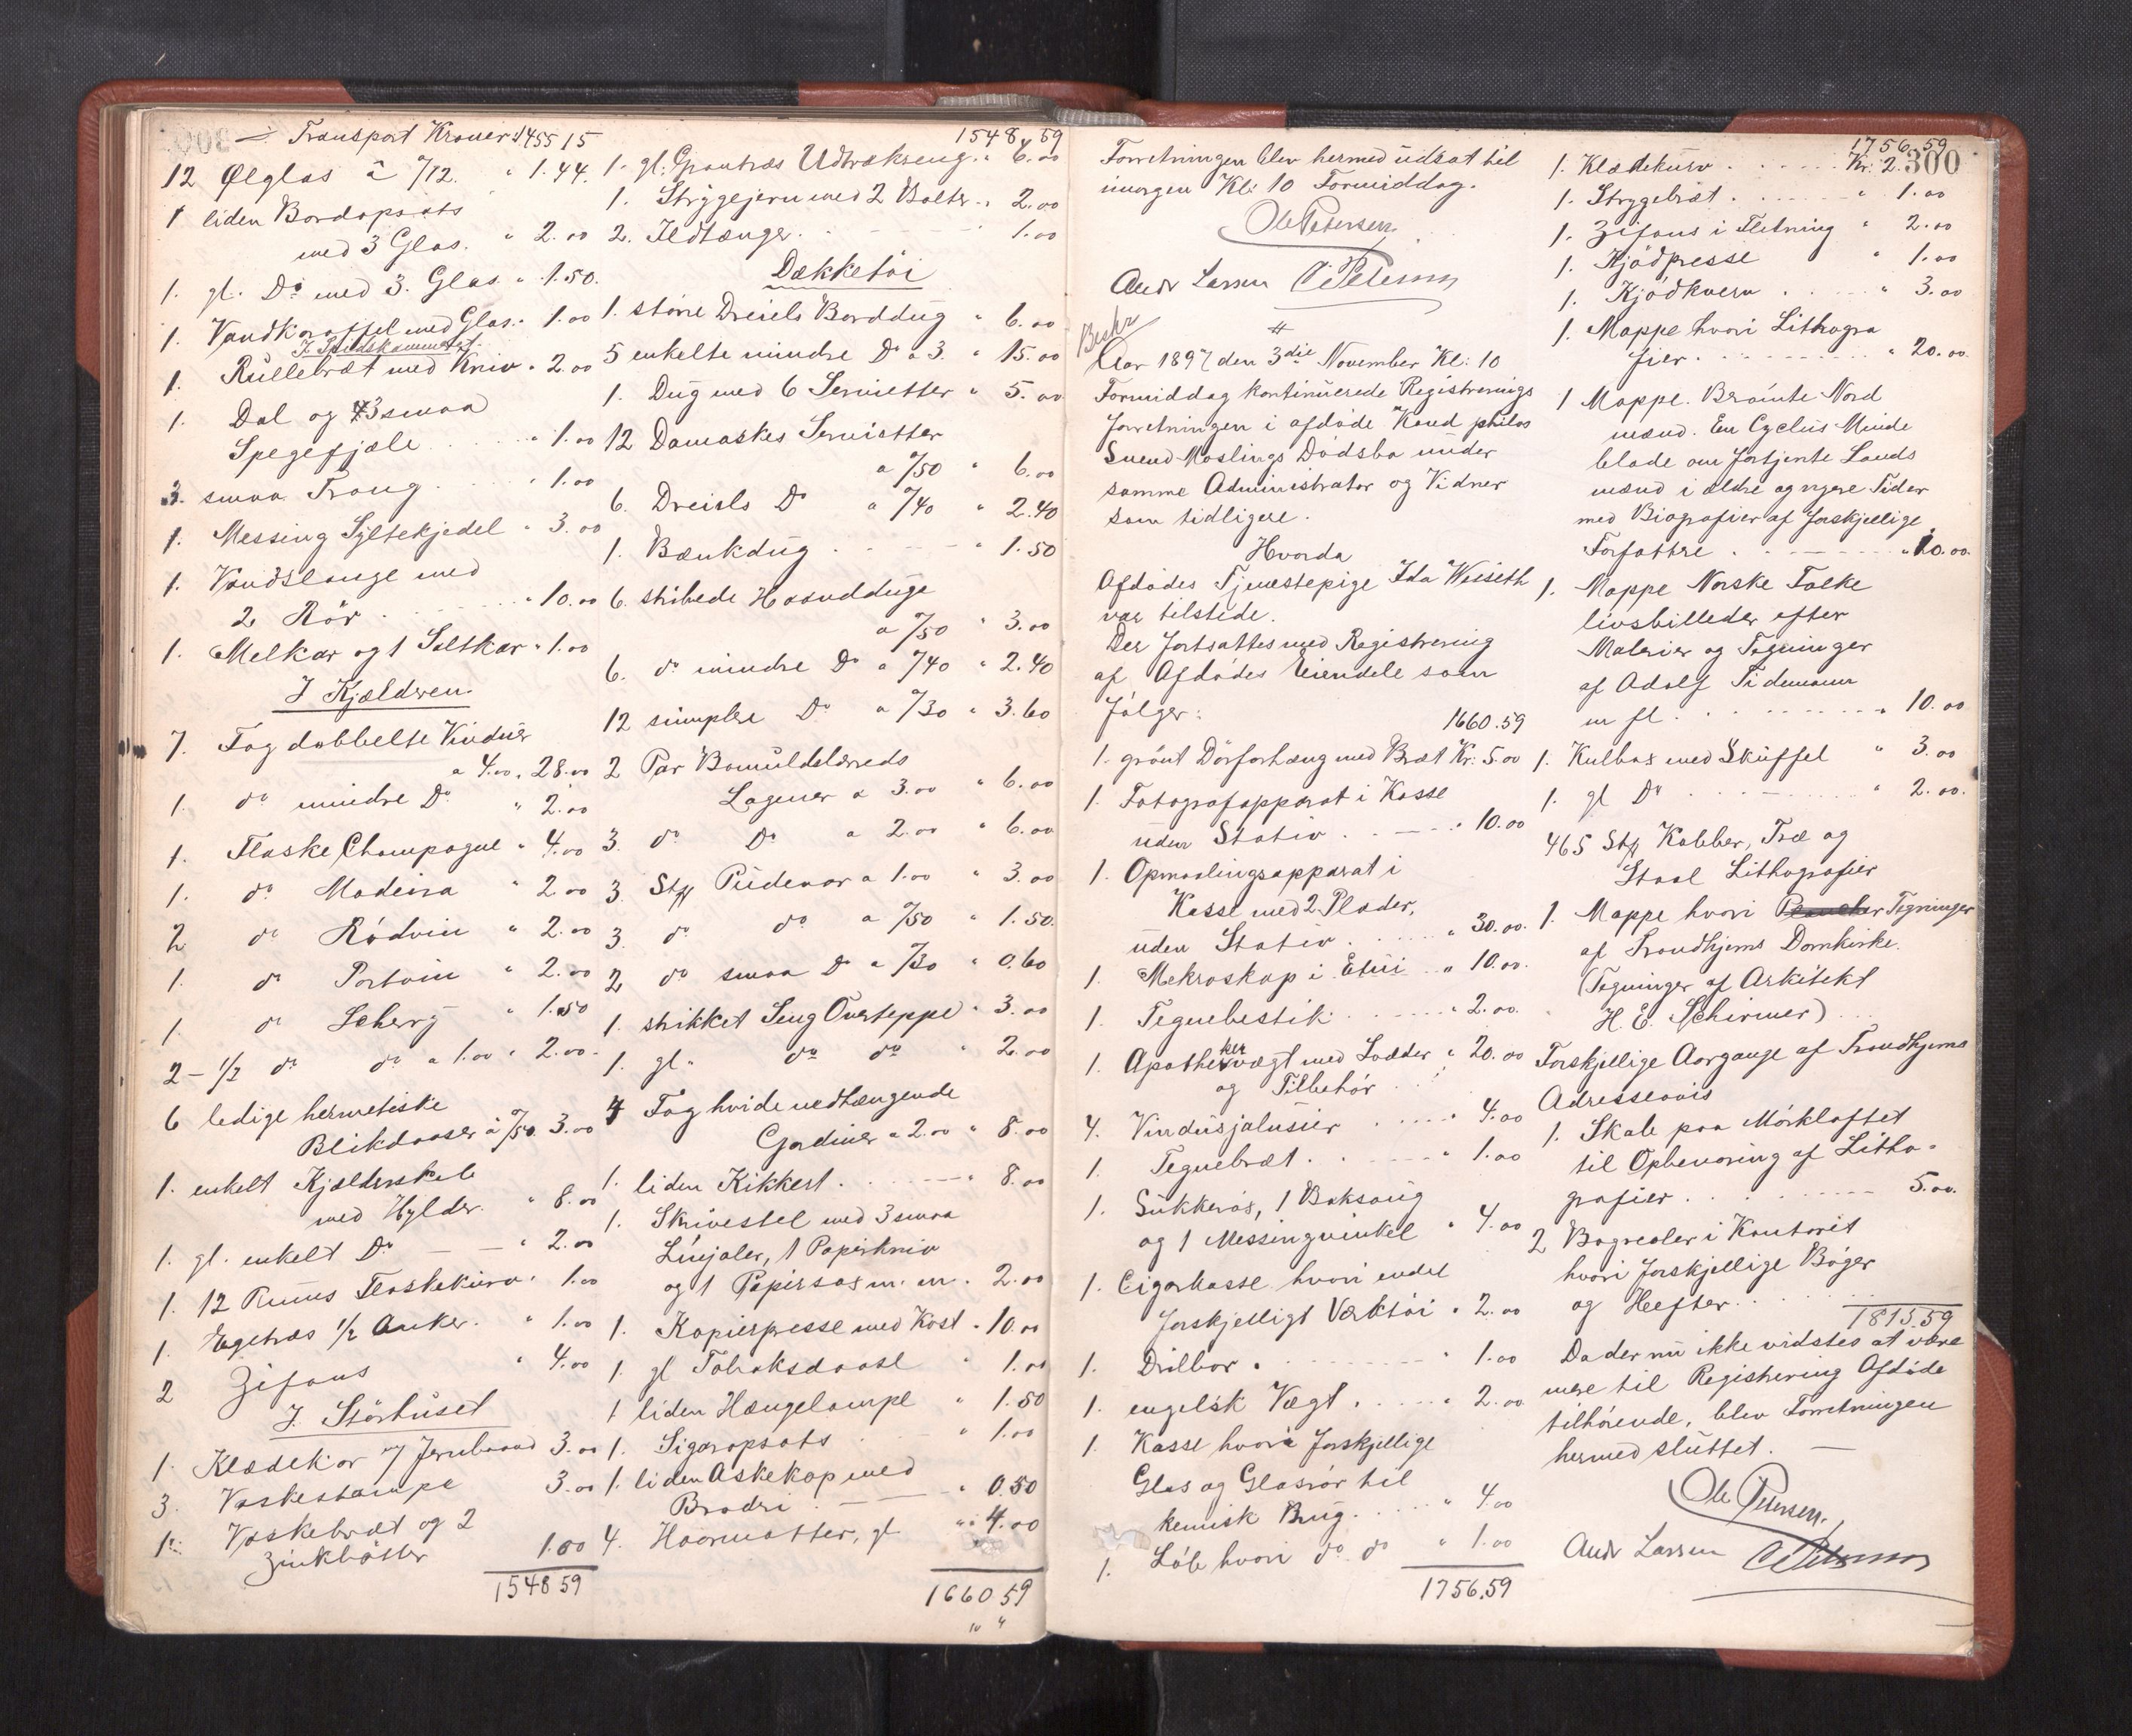 Transport Kroner 1455 15
12 Ølglas a %12. " 1.44.
1 liden Bordopsats
med 3 Glas. " 2.00
1. gl. Do med 3. Glas " 1.50.
1. Vandkaraffel med Glas. 1.00
I Spidskammeret.
1. Rullebræt med Kniv " 2.00
1. Dal og 3 smaa
Spegefjæle " 1.00
3. smaa Traug " 1.00
1. Messing Syltekjedel " 3.00
1. Vandslange med
2 Rör " 10.00
1. Melkar og 1 Saltkar " 1.00
I Kjælderen
7. Fag dobbelte Vinduer
a 4.00 " 28.00
1. do mindre Do " 2.00
1. Flaske Champagne " 4.00
1. do Madeira " 2.00
2 do Rödvin " 2.00
1. do Portvin " 2.00
1. do Scherry " 1.50
2 - 1/2 do do a 1.00 " 2.00
6 ledige hermetiske
Blikdaaser a %50 3.00
1. enkelt Kjælderskab
med Hylder. " 8.00
1. gl. enkelt Do " 2.00
1. 12 Rums Flaskekurv " 1.00
1. Egetræs 1/2 Anker. " 1.00
2 Zifons " 4.00
I. Störhuset
1. Klædekar m/ Jernbaand 3.00
3. Vaskestampe 3.00
1. Vaskebræt og 2
Zinkbötter 1.00
1548 59
1548 59
1. gl. Grantræs Udtrækseng " 6.00
1. Strygejern med 2 Bolter " 2.00
2. Ildtænger. 1.00
Dækketöi
1. större Dreiels Borddug " 6.00
5 enkelte mindre Do a 3. " 15.00
1. Dug med 6 Servietter " 5.00
12 Damaskes Servietter
a %50 " 6.00
6. Dreiels Do a %40 " 2.40
1. Bænkdug " 1.50
6. stribede Haandduge
a %50 " 3.00
6. do mindre Do a %40 " 2.40
12 simplere Do a %30 " 3.60
2 Par Bomuldslærreds
Lagener a 3.00 " 6.00
3. do Do a 2.00 " 6.00
3 Stk Pudevar a 1.00 " 3.00
3. do do a %50 " 1.50.
2 do smaa Do a %30 " 0.60
1. strikket Seng Overteppe " 3.00
1. gl. do do " 2.00
4 Fag hvide nedhængende
Gardiner a 2.00 " 8.00
1. liden Kikkert. " 8.00
1. Skrivestel med 3 smaa
Linjaler, 1 Papirkniv
og 1 Papirsax m. m. " 2.00
1. Kopierpresse med Kost " 10.00
1. gl Tobaksdaase " 1.00
1 liden Hængelampe " 1.50
1. Sigaropsats " 1.00
1. liden Askekop med
Broderi " 0.50
4. Haarmatter, gl " 4.00
1660 59
" "
Forretningen blev hermed udsat til
imorgen Kl: 10 Formiddag.
Ole Petersen
Andr Larsen C Petersen
Beskr
Aar 1897 den 3die November Kl: 10
Formiddag kontinuerede Registrerings
forretningen i afdöde Kand philos
Svend Moslings Dödsbo under
samme Administrator og Vidner
som tidligere.
Hvorda
Afdödes Tjenestepige Ida Weiseth
var tilstede.
Der fortsattes med Registrering
af Afdödes Eiendele som
fölger: 1660.59
1. grönt Dörforhæng med Bræt Kr. 5.00
1. Fotografapparat i Kasse
uden Stativ. " 10.00
1. Opmaalingsapparat i
Kasse med 2 Plader,
uden Stativ. " 30.00.
1. Mekroskop i Etui " 10.00.
1. Tegnebestik " 2.00.
1. Apothekervægt med Lodder " 20.00
og Tilbehör
4. Vindusjalusier " 4.00
1. Tegnebræt. " 1.00
1. Sukkerøs, 1 Baksaug
og 1 Messingvinkel " 4.00
1. Cigarkasse hvori endel
forskjelligt Værktöi " 2.00
1. Drilbor. " 1.00
1. engelsk Vægt. " 2.00
1. Kasse hvori forskjellige
Glas og Glasrör til
kemisk Brug. " 4.00
1. Löb hvori do do " 1.00
1756.59
1756.59
300
1. Klædekurv Kr. 2.
1. Strygebræt " 1.00
1. Zifons i Fletning " 2.00
1. Kjödpresse " 1.00
1. Kjödkvern " 3.00
1. Mappe hvori Lithogra
fier. " 20.00
1 Mappe. Berömte Nord
mænd. En Cyclus Minde
blade om fortjente Lands
mænd i ældre og nyere Tider
med Biografier af forskjellige
Forfattre " 10.00.
1. Mappe Norske Folke
livsbilleder efter
Malerier og Tegninger
af Adolf Tidemann
m fl. " 10.00
1. Kulbox med Skuffel " 3.00
1. gl Do " 2.00.
465 Stk Kobber, Træ og
Staal Lithografier
1. Mappe hvori Plancher Tegninger
af Trondhjems Domkirke.
(Tegninger af Arkitekt
H. E. Schirmer)
Forskjellige Aargange af Trondhjems
Adresseavis
1. Skab paa Mörkloftet
til Opbevaring af Litho-
grafier 5.00.
2 Bogreoler i Kontoret
hvori forskjellige Böger
og Hefter.
1815.59
Da der nu ikke vidstes at være
mere til Registrering Afdöde
tilhörende, blev Forretningen
hermed sluttet.
Ole Petersen.
Andr Larsen C Petersen